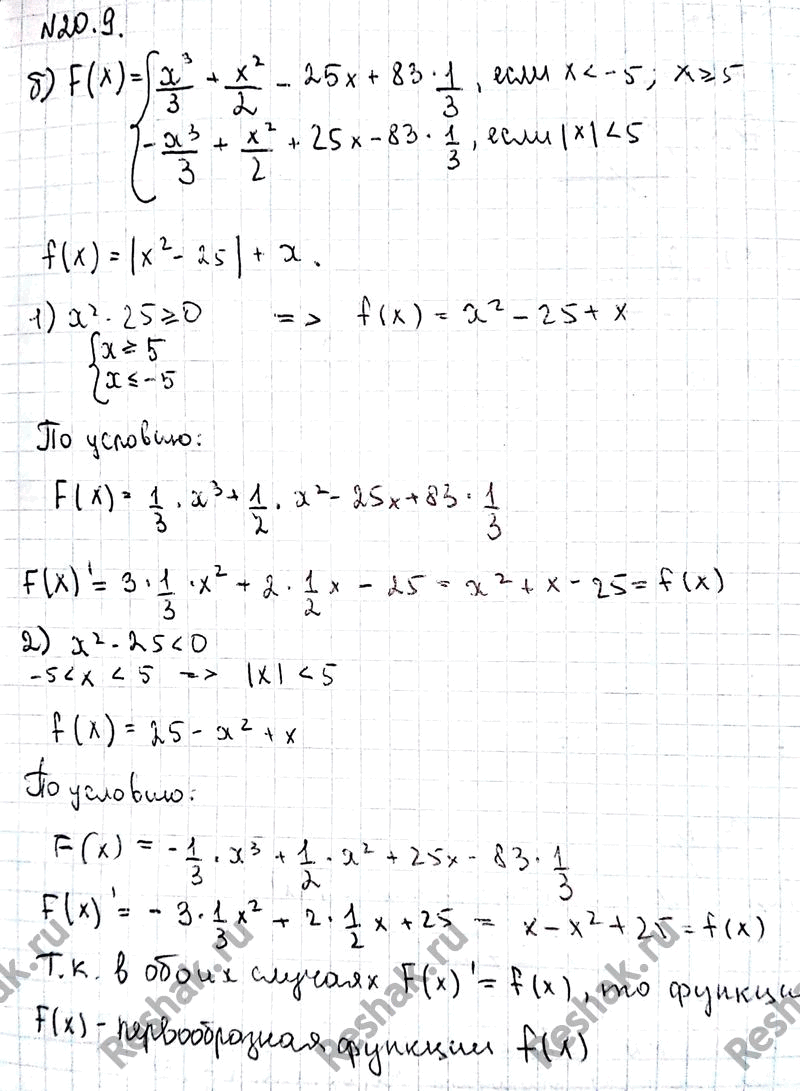 №20.9.
б) F(x) = { x³/3 + x²/2 - 25x + 83·1/3, если x < -5; x ≥ 5
-x³/3 + x²/2 + 25x - 83·1/3, если |x| < 5
f(x) = |x² - 25| + x.
1) x² - 25 ≥ 0 => f(x) = x² - 25 + x
{ x ≥ 5
x ≤ -5
По условию:
F(x) = 1/3 · x³ + 1/2 · x² - 25x + 83 · 1/3
F(x)' = 3 · 1/3 · x² + 2 · 1/2 x - 25 = x² + x - 25 = f(x)
2) x² - 25 < 0
-5 < x < 5 => |x| < 5
f(x) = 25 - x² + x
По условию:
F(x) = -1/3 · x³ + 1/2 · x² + 25x - 83 · 1/3
F(x)' = - 3 · 1/3 x² + 2 · 1/2 x + 25 = x - x² + 25 = f(x)
Т.к. в обоих случаях F(x)' = f(x), то функци
F(x) - первообразная функции f(x)
ak.ru Reshak.ru Reshak.ru Reshak.ru Resh